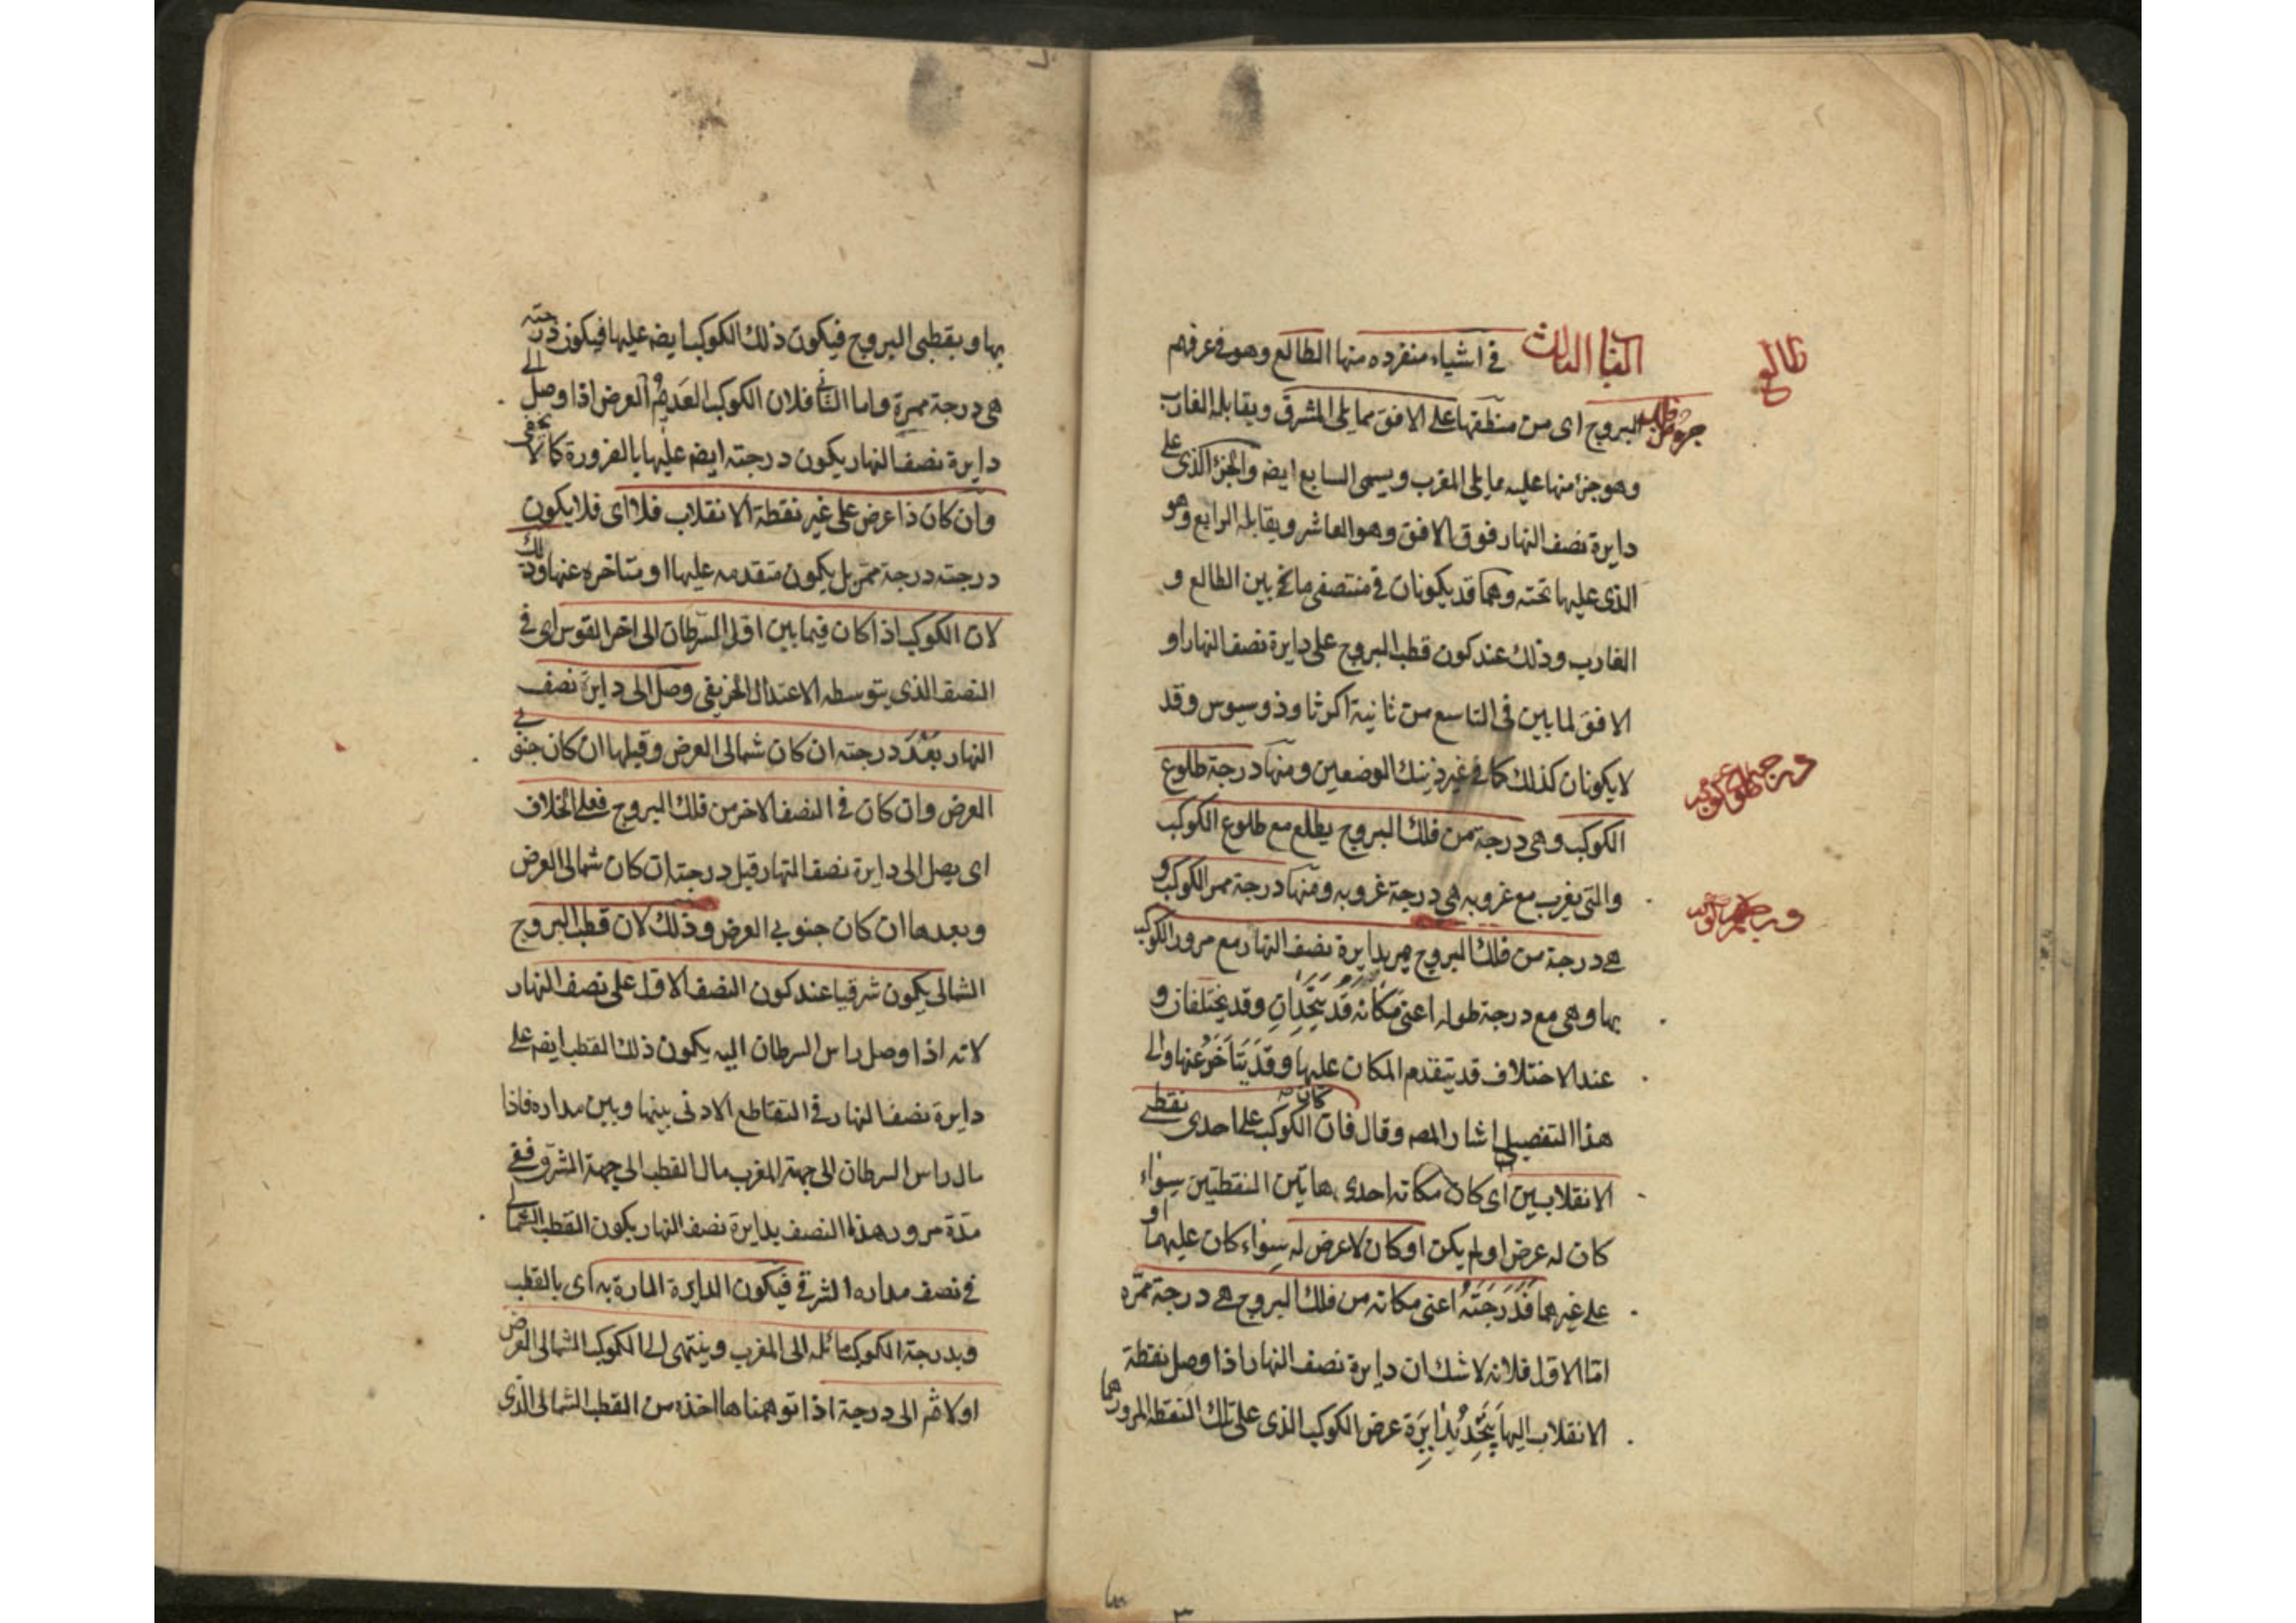 طالع
الباب الثالث في اشياء منفرده منها الطالع وهو في عرفهم
البروج اى من منطقتها على الافق مما يلى المشرق ويقابله الغارب
وهو جزء منها عليه مما يلى المغرب ويسمى السابع ايضه والجزء الذى على
دايرة نصف النهار فوق الافق وهو العاشر ويقابله الرابع وهو
الذى عليها تحته وهما قد يكونان في منتصفى ما بين الطالع و
الغارب وذلك عند كون قطب البروج على دايرة نصف النهار او
الافق لما بين فى التاسع من ثانية اكرثاوذوسيوس وقد
لا يكونان كذلك كما في غير ذينك الوضعين ومنها درجة طلوع
الكوكب وهى درجة من فلك البروج يطلع مع طلوع الكوكب
والتى يغرب مع غروبه هى درجة غروبه ومنها درجة ممر الكوكب و
هى درجة من فلك البروج يمر بدايرة نصف النهار مع مرور الكوكب
بها وهى مع درجة طوله اعنى مكانه قد يتحدان وقد يختلفان و
عند الاختلاف قد يتقدم المكان عليها وقد يتاخر عنها والى
هذا التفصيل اشار المصه وقال فان كان الكوكب على احدى نقطتى
الانقلابين اى كان مكانه احدى هاتين النقطتين سواء
كان له عرض او لم يكن او كان لا عرض له سواء كان عليهما او
على غيرهما فدرجته اعنى مكانه من فلك البروج هى درجة ممره
اما الاول فلانه لا شك ان دايرة نصف النهار اذا وصل نقطة
الانقلاب اليها يتحد بدايرة عرض الكوكب الذى على تلك النقطة لمرورهما
بها وبقطبى البروج فيكون ذلك الكوكب ايضه عليها فيكون درجته
هى درجة ممره واما الثانى فلان الكوكب العديم العرض اذا وصل الى
دايرة نصف النهار يكون درجته ايضه عليها بالضرورة كما لا يخفى
وان كان ذا عرض على غير نقطة الانقلاب فلا اى فلا يكون
درجته درجة ممر بل يكون متقدمه عليها او متاخره عنها وذلك
لان الكوكب اذا كان فيما بين اول السرطان الى اخر القوس اى في
النصف الذى يتوسطه الاعتدال الخريفى وصل الى دايرة نصف
النهار بعد درجته ان كان شمالى العرض وقبلها ان كان جنوبى
العرض وان كان في النصف الاخر من فلك البروج فعلى الخلاف
اى يصل الى دايرة نصف النهار قبل درجته ان كان شمالى العرض
وبعدها ان كان جنوبى العرض وذلك لان قطب البروج
الشمالى يكون شرقيا عند كون النصف الاول على نصف النهار
لانه اذا وصل راس السرطان اليه يكون ذلك القطب ايضه على
دايرة نصف النهار في التقاطع الادنى بينها وبين مداره فاذا
مال راس السرطان الى جهة المغرب مال القطب الى جهة المشرق ففى
مدة مرور هذا النصف بدايرة نصف النهار يكون القطب الشمالى
في نصف مداره الشرقى فيكون الدايرة المارة به اى بالقطب
وبدرجة الكوكب مائله الى المغرب وينتهى الى الكوكب الشمالى العرض
اولا ثم الى درجته اذا توهمناها اخذه من القطب الشمالى الذى